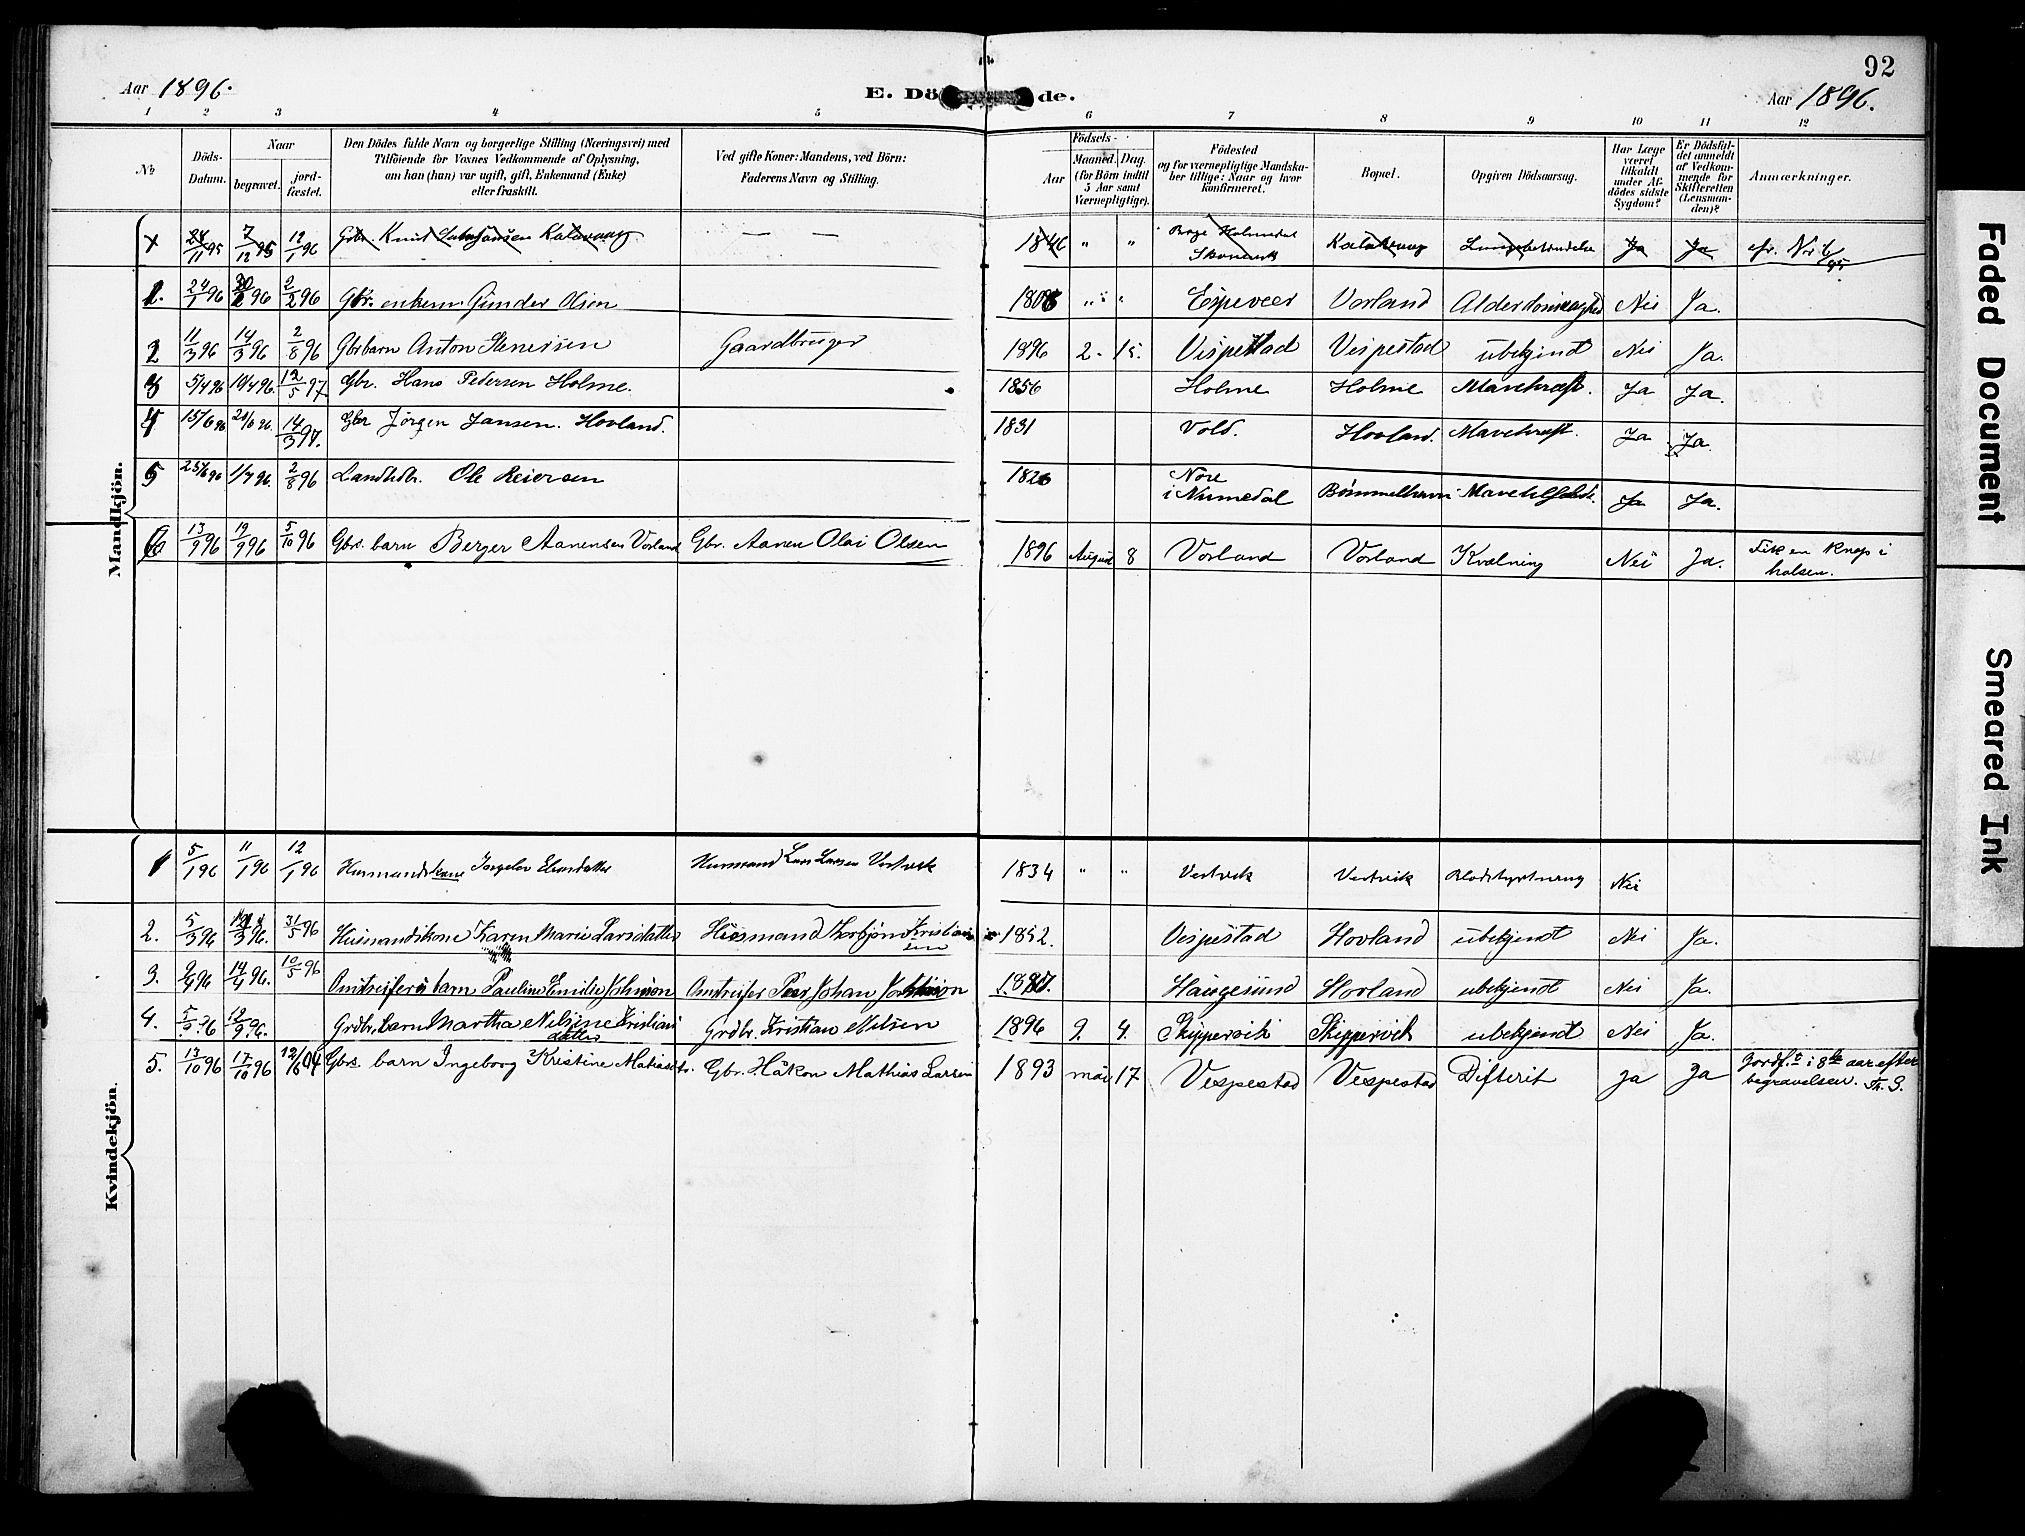 92
Aar 1896.
E. Dö de.
Aar 1896.
1 2 3 4 5 6 7 8 9 10 11 12
No
Döds-
Datum.
Naar
begravet.
jord-
fæstet.
Den Dödes fulde Navn og borgerlige Stilling (Næringsvei) med
Tilföiende for Voxnes Vedkommende af Oplysning,
om han (hun) var ugift, gift, Enkemand (Enke)
eller fraskilt.
Ved gifte Koner: Mandens, ved Börn:
Faderens Navn og Stilling.
Födsels-
Aar
Maaned. Dag.
(for Börn indtil
5 Aar samt
Værnepligtige).
Födested
og for værnepligtige Mandska-
ber tillige: Naar og hvor
konfirmeret.
Bopæl.
Opgiven Dödsaarsag.
Har Læge
været
tilkaldt
under Af-
dödes sidste
Sygdom?
Er Dödsfal-
det anmeldt
af Vedkom-
mende for
Skifteretten
(Lensman-
den)?
Anmærkninger.
Mandkjön.
x 7/12 95 12/1 96 Gbr. Knud Kalavaag — — 1846 " " Kalavaag Ja Ja cfr. No 6/95
1. 24/1 96 2/2 96 Gbr. enkem. Gunder Olsen 1808 " " Espeveer Vorland Alderdomssvaghed Nei Ja.
2 11/3 96 14/3 96 2/8 96 Gbr barn Anton Stenersen Gaardbruger 1896 2. 15. Vespestad Vespestad ubekjendt Nei Ja.
3 5/4 96 10/4 96. 12/5 97 Gbr. Hans Pedersen Holme. 1856 Holme Holme Mavekræft. Ja Ja.
4 15/6 96 21/6 96. 14/3 97. Gbr Jörgen Jansen. Hovland. 1831 Vold. Hovland. Mavekræft. Ja Ja.
5 25/6 96 1/7 96. 2/8 96 Ole Reiersen 1826 Nore
i Numedal Bömmelhavn Ja Ja.
6 13/9 96 19/9 96 5/10 96 Gbrs. barn Berger Aanensen Vorland Gbr. Aanen Olai Olsen 1896 August 8 Vorland Vorland Kvælning Nei Ja. Fik en Knap i
halsen.
Kvindekjön.
1 5/1 96 11/1 96 12/1 96 Husmandskone Ingelev Husmand Lars Larsen Vestvik 1834 " " Vestvik Vestvik Blodstyrtning Nei
2. 5/3 96 31/5 96 Husmandskone Karen Marie Larsdatter Husmand Torbjörn Kristian
sen 1852. Vespestad Hovland ubekjendt Nei Ja.
3. 9/4 96 14/4 96. 10/5 96 barn Pauline Emilie Johnson Peer Johan 1887. Haugesund Hovland ubekjendt Nei Ja.
4. 5/9 96 12/9 96. Grdbr. barn Martha Nilsine Kristians
datter Grdbr. Kristian Nilsen 1896 9. 4. Skippervik Skippervik ubekjendt Nei Ja.
5. 13/10 96 17/10 96 12/6 04 Gbrs. barn Ingeborg Kristine Matiasdtr. Gbr. Håkon Mathias Larsen 1893 mai 17 Vespestad Vespestad Difterit Ja Ja Jordf. i 8de aar efter
begravelsen. Th. S.
Faded Document
Smeared Ink